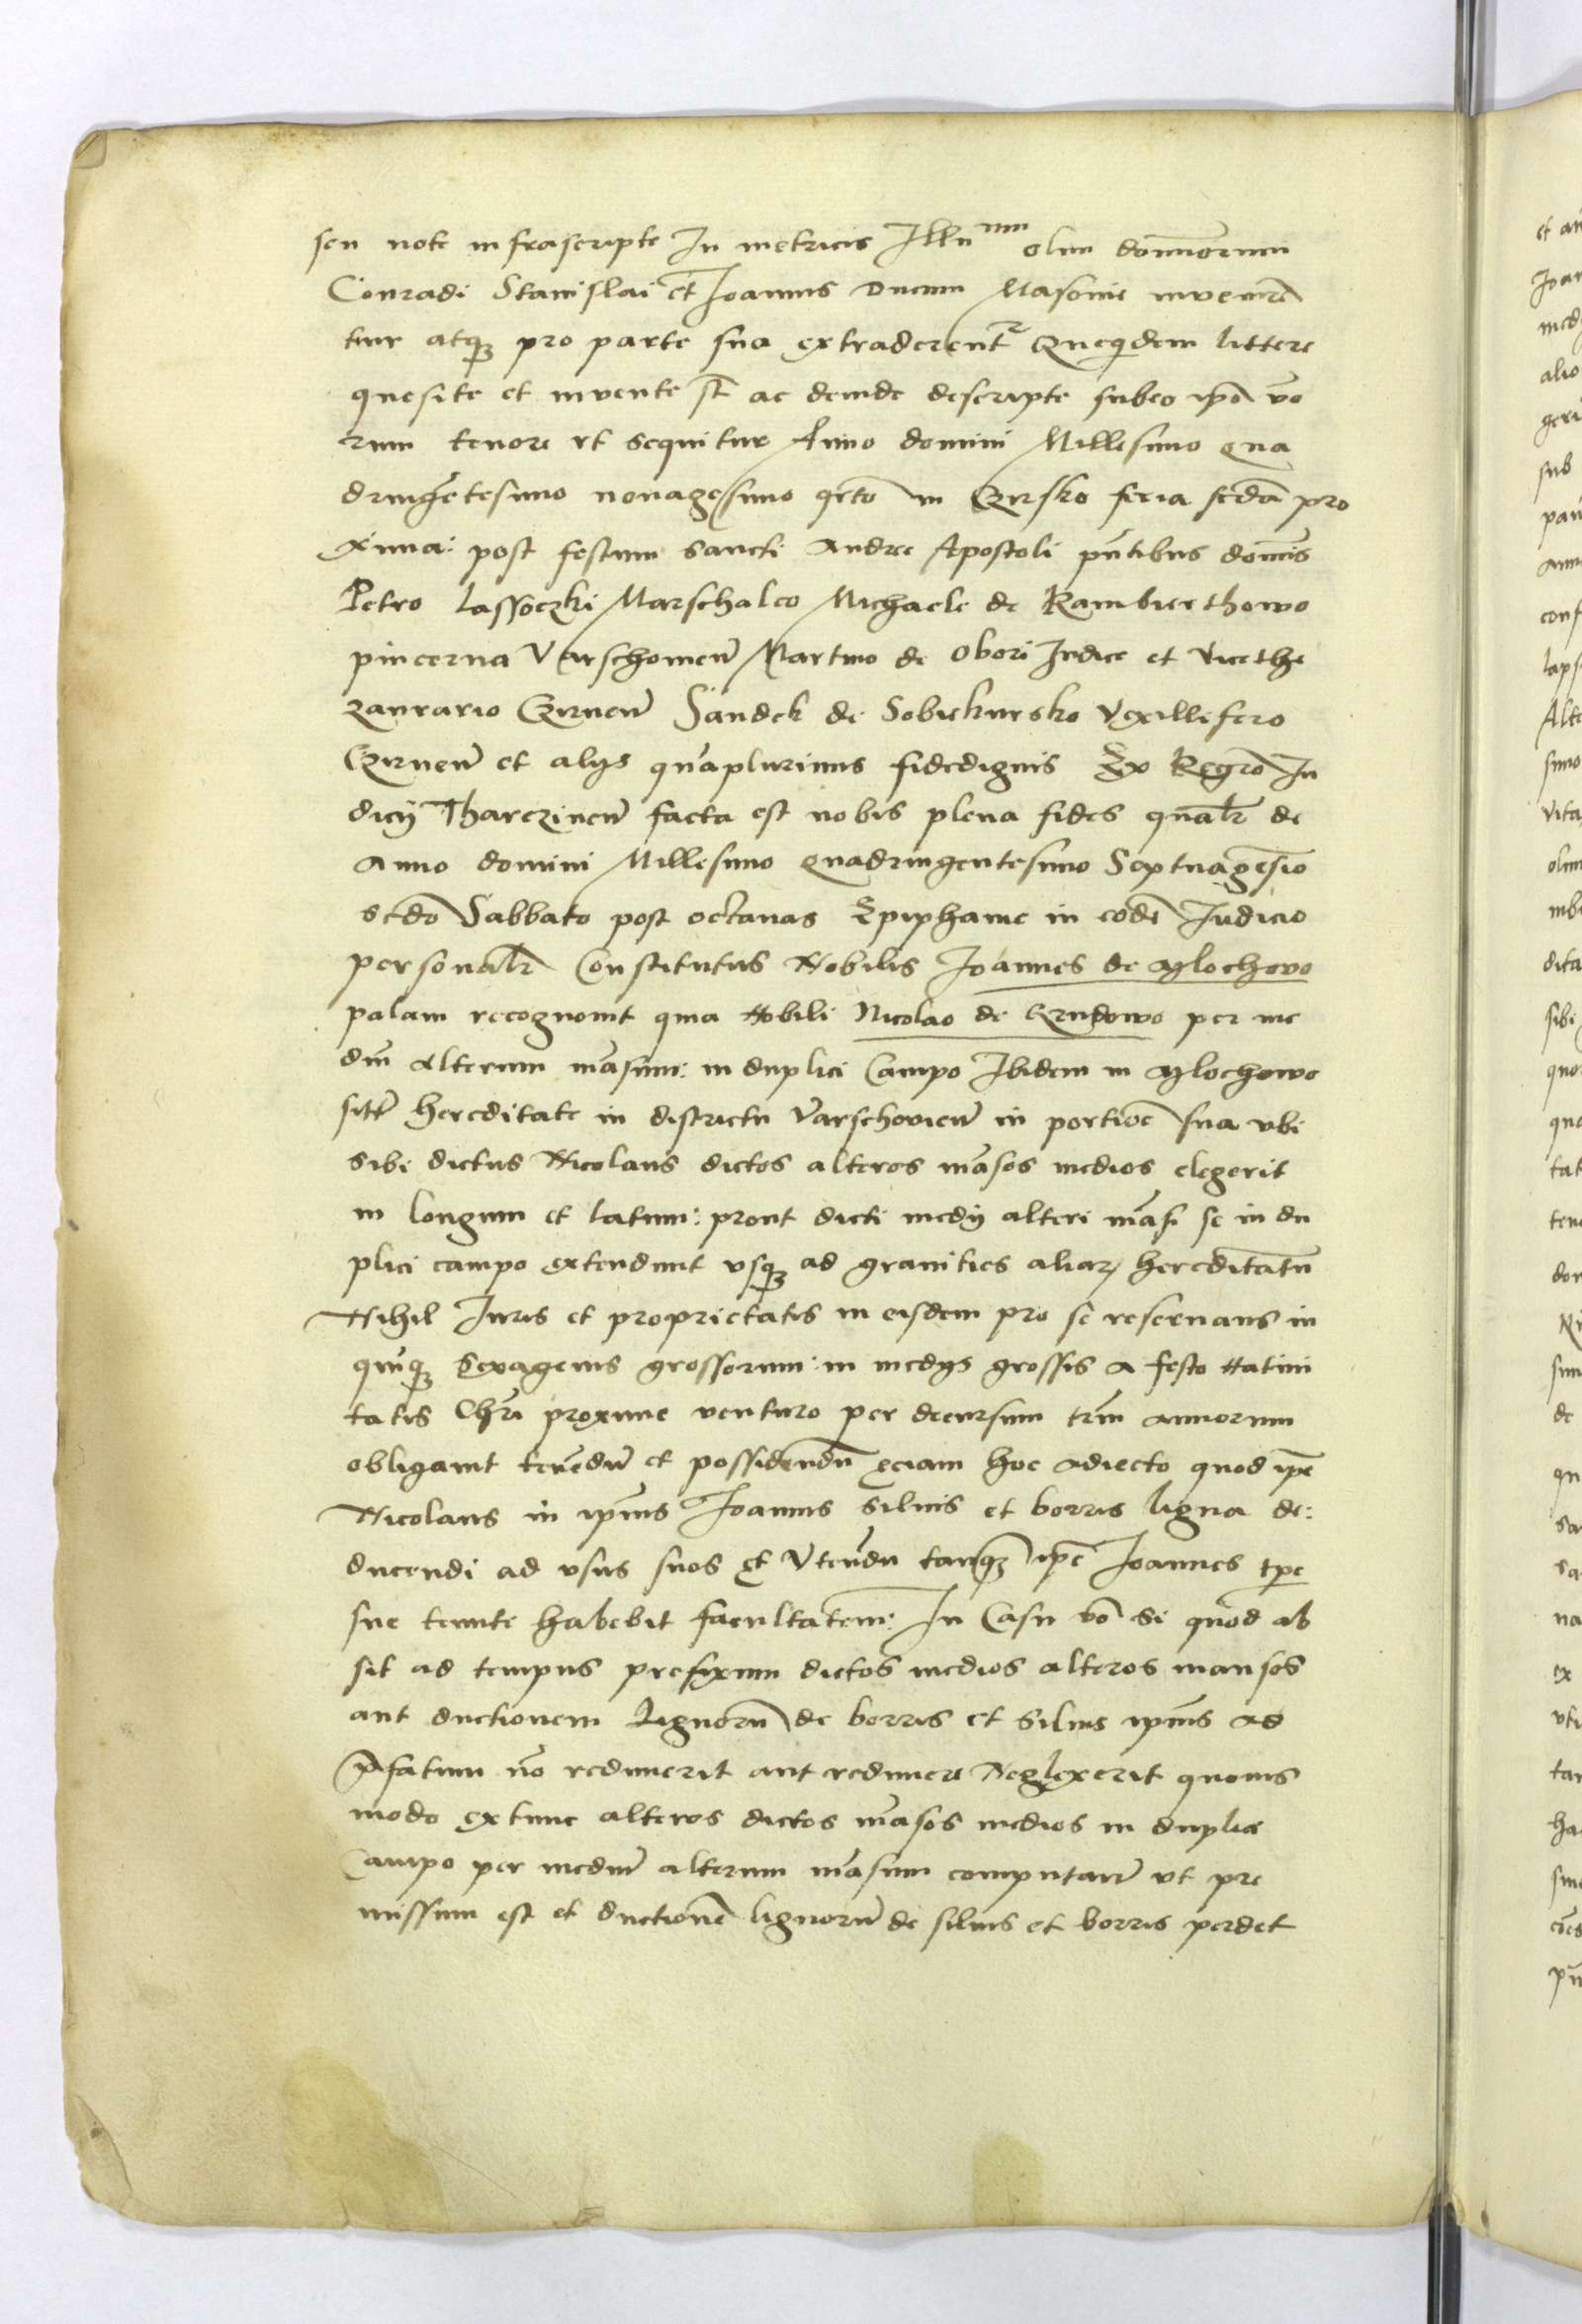 seu note infrascripte In metricis Illu mm olim dominorum
Conradi Stanislai et Joannis Ducum Masovie invenire
tur atq; pro parte sua extraderent Queqdem littere
quesite et invente st ac deinde descripte subeo ipo vo
rum tenore ut sequitur Anno domini Millesimo qua
dringetesimo nonagesimo qrto in Czirsko feria scda pro
xima: post festum Sancti Andre Apostoli pntibus domis
Petro Lassoczki Marschalco Michaele de Rambierthowo
pincerna Varschovien Martino de Obori Iudice et vicethe
zaurario Czirnen Sandek de Sobiekursko Vexillifero
Czirnen et alys qmaplurimis fidedignis Ex Regro Iu
dicy Tharczinen facta est nobis plena fides qualr de
Anno domini Millesimo quadringentesimo Septuagesio
scdo Sabbato post octavas Epiphanie in eode Iudicio
personalr Constitutus Nobilis Joannes de Mlochowo
palam recognovit quia Nobili Nicolao de Krudowo per me
dm alterum masum: in duplici Campo Ibidem in Mlochowo
sitt hereditate in districtu Varschovien in portioe sua ubi
sibi dictus Nicolaus dictos alteros masos medios elegerit
in longum et latum: prout dicti medy alteri masi se in du
plici campo extendunt usq; ad granities aliar hereditatu
Nihil Iuris et proprietatis in eisdem pro se reservans in
quiq; Sexagenis grossorum: in medys grossis a festo Nativi
tatis Chri proxime venturo per decursum trim annorum
obligavit tenedu et possidendu eciam hoc adiecto quod ipe
Nicolaus in ipius Joannis silvis et borris ligna de:
ducendi ad usus suos et Utendu tanq; ipe Joannes tpe
sue tenute habebit facultatem: In Casu vo Si quod ab
sit ad tempus prefixum dictos medios alteros mansos
aut ductionem Lignoru de borris et Silvis ipius ad
pfatum no redimerit aut redimere Neglexerit quovis
modo extunc alteros dictos masos medios in duplici
Campo per mediu alterum masum computare ut pre
missum est et ductione lignoru de silvis et borris perdet